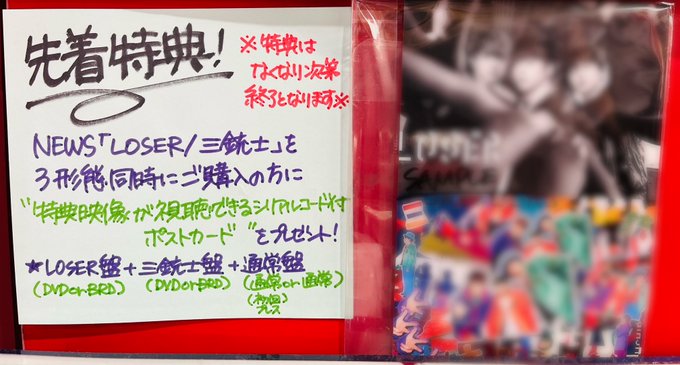 先着特典!
※特典は
なくなり次第
終了となります※
NEWS「LOSER/三銃士」を
3形態同時にご購入の方に
"特典映像が視聴できるシリアルコード付
ポストカード"をプレゼント!
★LOSER盤+三銃士盤+通常盤
(DVDorBRD) (DVDorBRD) (通常or通常)
(初回
プレス)
LOSER
SAMPLE